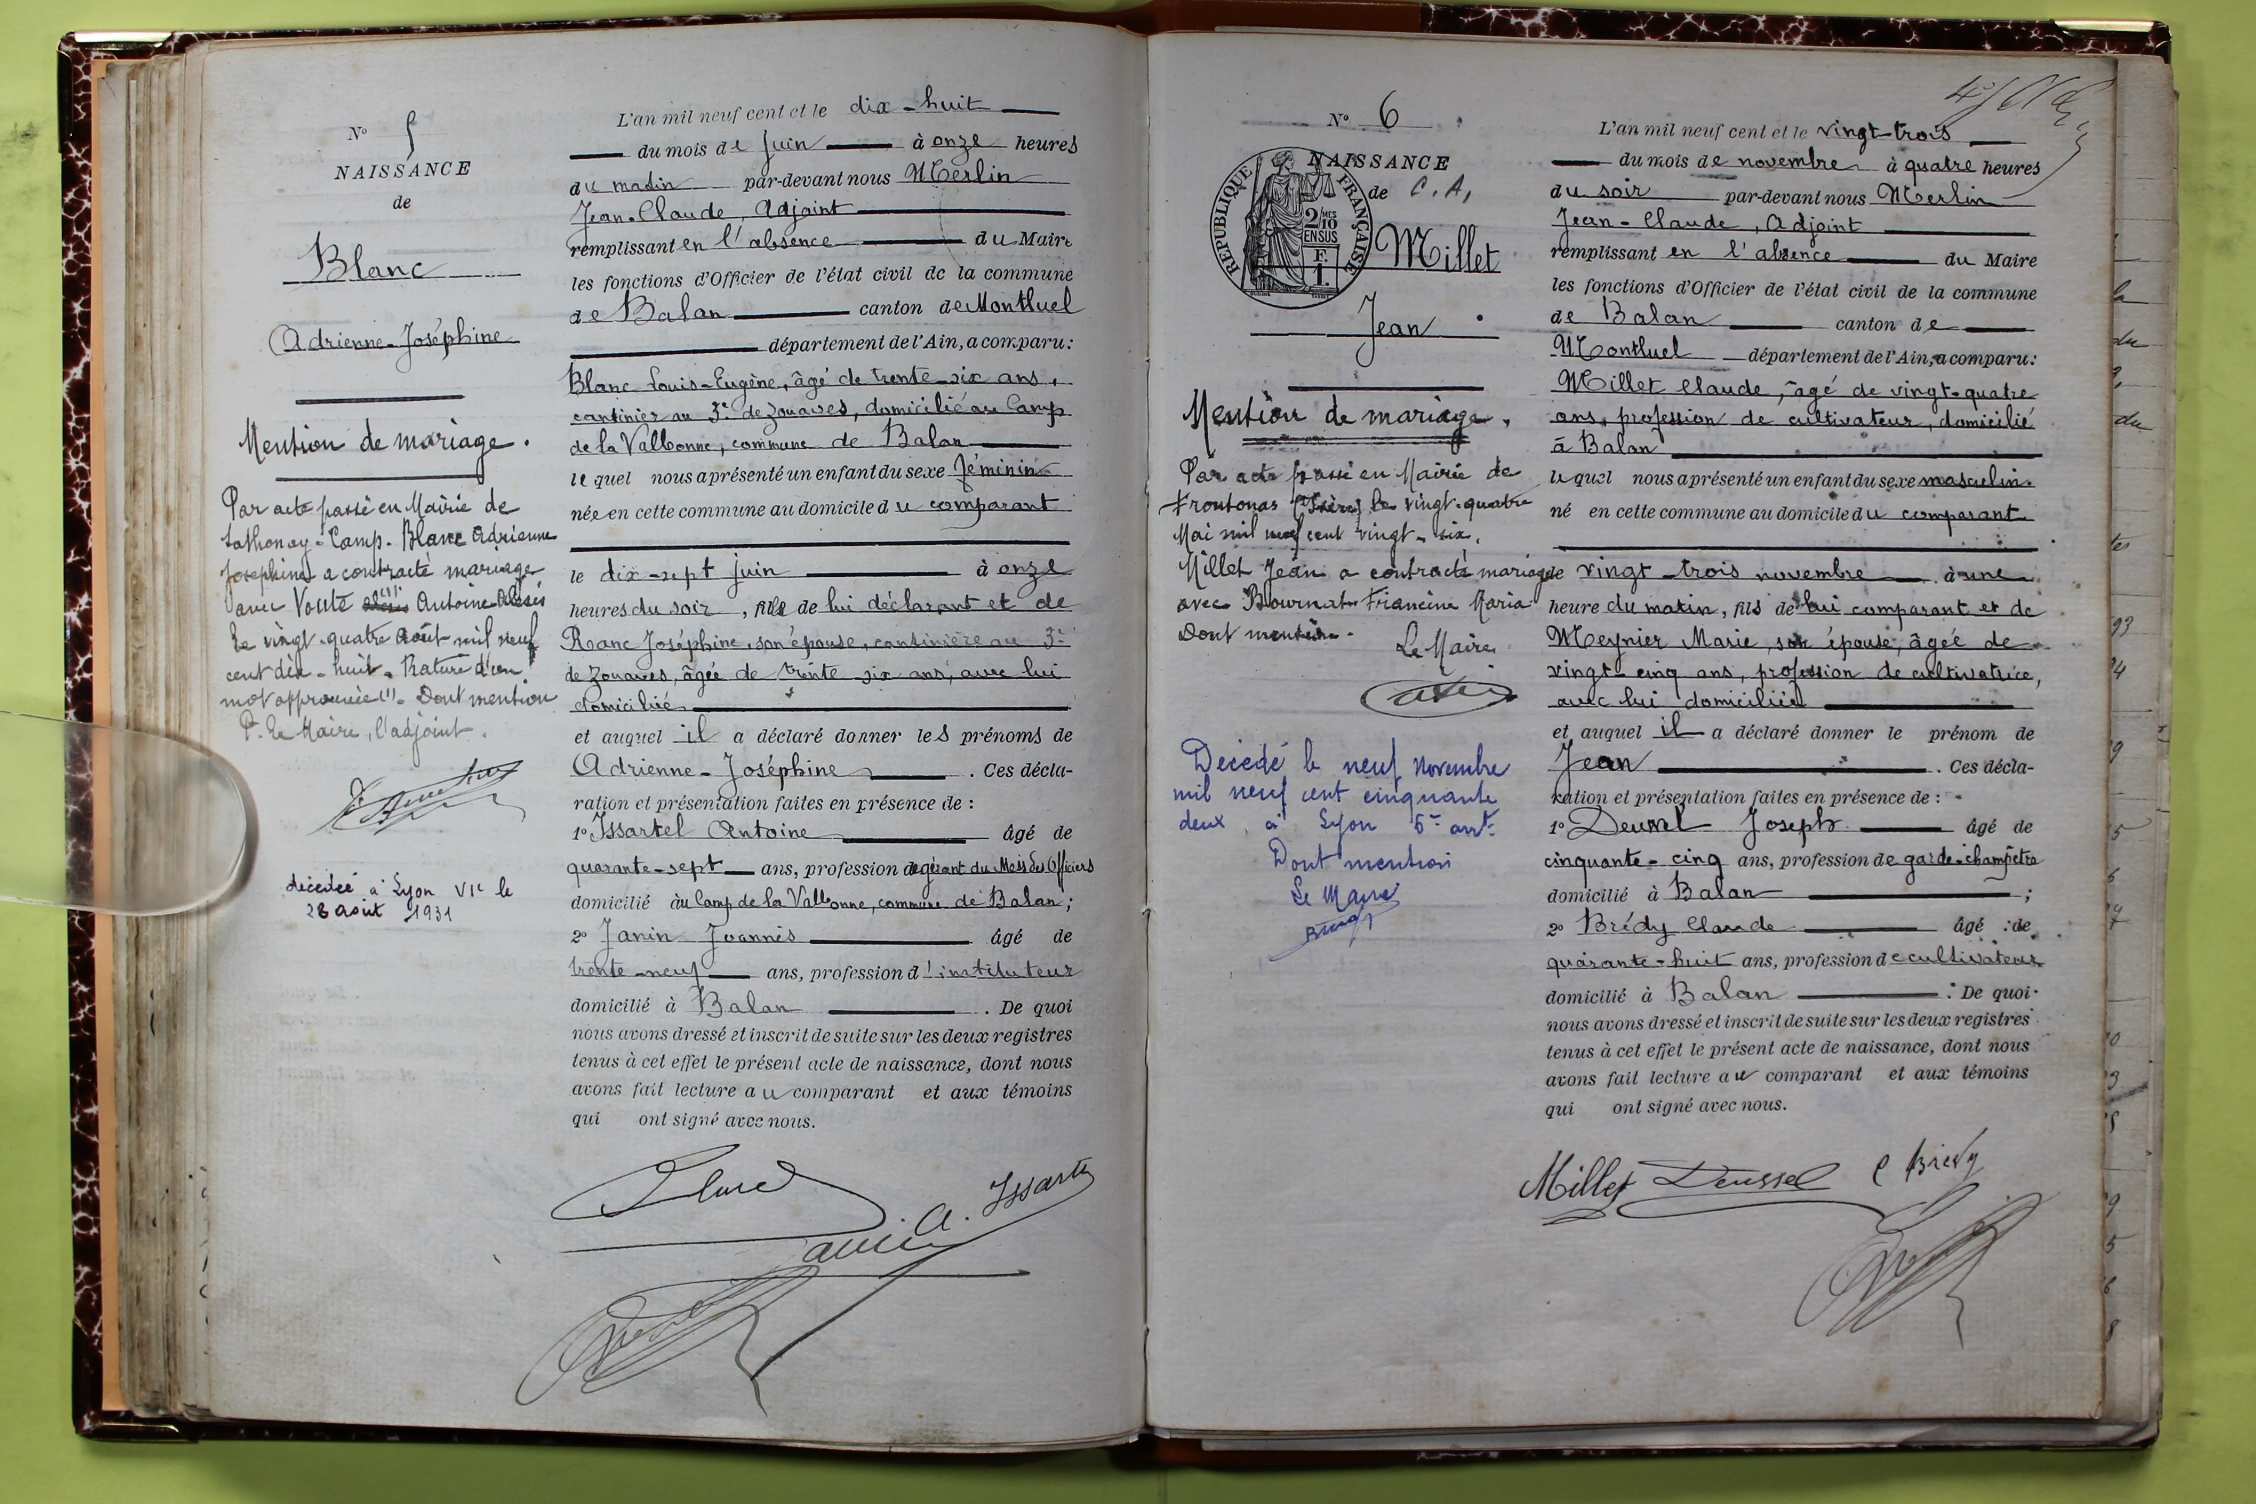 N° 5
NAISSANCE
de
Blanc
Adrienne-Joséphine
Mention de mariage.
Par acte passé en Mairie de
Sathonay-Camp. Blanc Adrienne
Josephine a contracté mariage
avec Voute (1) Antoine Alexis
le vingt-quatre Août mil neuf
cent dix-huit. Rature d'un
mot approuvée (1). Dont mention
P. le Maire, l'adjoint.
décédée à Lyon VIe le
28 août 1931
L'an mil neuf cent et le dix-huit
du mois de Juin à onze heures
du matin par-devant nous Merlin
Jean-Claude, Adjoint
remplissant en l'absence du Maire
les fonctions d'Officier de l'état civil de la commune
de Balan canton de Montluel
département de l'Ain, a comparu:
Blanc Louis-Eugène, âgé de trente-six ans,
cantinier au 3e de Zouaves, domicilié au Camp
de la Valbonne, commune de Balan
lequel nous a présenté un enfant du sexe féminin
née en cette commune au domicile du comparant
le dix-sept juin à onze
heures du soir, fille de lui déclarant et de
Ranc Joséphine, son épouse, cantinière au 3e
de Zouaves, âgée de trente six ans, avec lui
domiciliée
et auquel il a déclaré donner les prénoms de
Adrienne-Joséphine. Ces décla-
ration et présentation faites en présence de :
1° Issartel Antoine âgé de
quarante-sept ans, profession de gérant du Mess des Officiers
domicilié au Camp de la Valbonne, commune de Balan;
2° Janin Joannès âgé de
trente-neuf ans, profession d'instituteur
domicilié à Balan. De quoi
nous avons dressé et inscrit de suite sur les deux registres
tenus à cet effet le présent acte de naissance, dont nous
avons fait lecture au comparant et aux témoins
qui ont signé avec nous.
Blanc
A. Issartel
Janin
N° 6
NAISSANCE
de C.A.
RÉPUBLIQUE FRANÇAISE
2/10 MES
EN SUS
F.
1.
Millet
Jean
Mention de mariage.
Par acte passé en Mairie de
Frontonas (Isère) le vingt-quatre
Mai mil neuf cent vingt-six,
Millet Jean a contracté mariage
avec Bournat Francine Maria
Dont mention.
Le Maire
Décédé le neuf Novembre
mil neuf cent cinquante
deux à Lyon 5e arrt
Dont mention
Le Maire
L'an mil neuf cent et le vingt-trois
du mois de novembre à quatre heures
du soir par-devant nous Merlin
Jean-Claude, Adjoint
remplissant en l'absence du Maire
les fonctions d'Officier de l'état civil de la commune
de Balan canton de
Montluel département de l'Ain, a comparu:
Millet Claude, âgé de vingt-quatre
ans, profession de cultivateur, domicilié
à Balan
lequel nous a présenté un enfant du sexe masculin
né en cette commune au domicile du comparant
le vingt-trois novembre à une
heure du matin, fils de lui comparant et de
Meynier Marie, son épouse, âgée de
vingt-cinq ans, profession de cultivatrice,
avec lui domiciliée
et auquel il a déclaré donner le prénom de
Jean. Ces décla-
ration et présentation faites en présence de :
1° Deussel Joseph âgé de
cinquante-cinq ans, profession de garde-champêtre
domicilié à Balan ;
2° Brédy Claude âgé de
quarante-huit ans, profession de cultivateur
domicilié à Balan. De quoi
nous avons dressé et inscrit de suite sur les deux registres
tenus à cet effet le présent acte de naissance, dont nous
avons fait lecture au comparant et aux témoins
qui ont signé avec nous.
Millet Deussel C Brédy